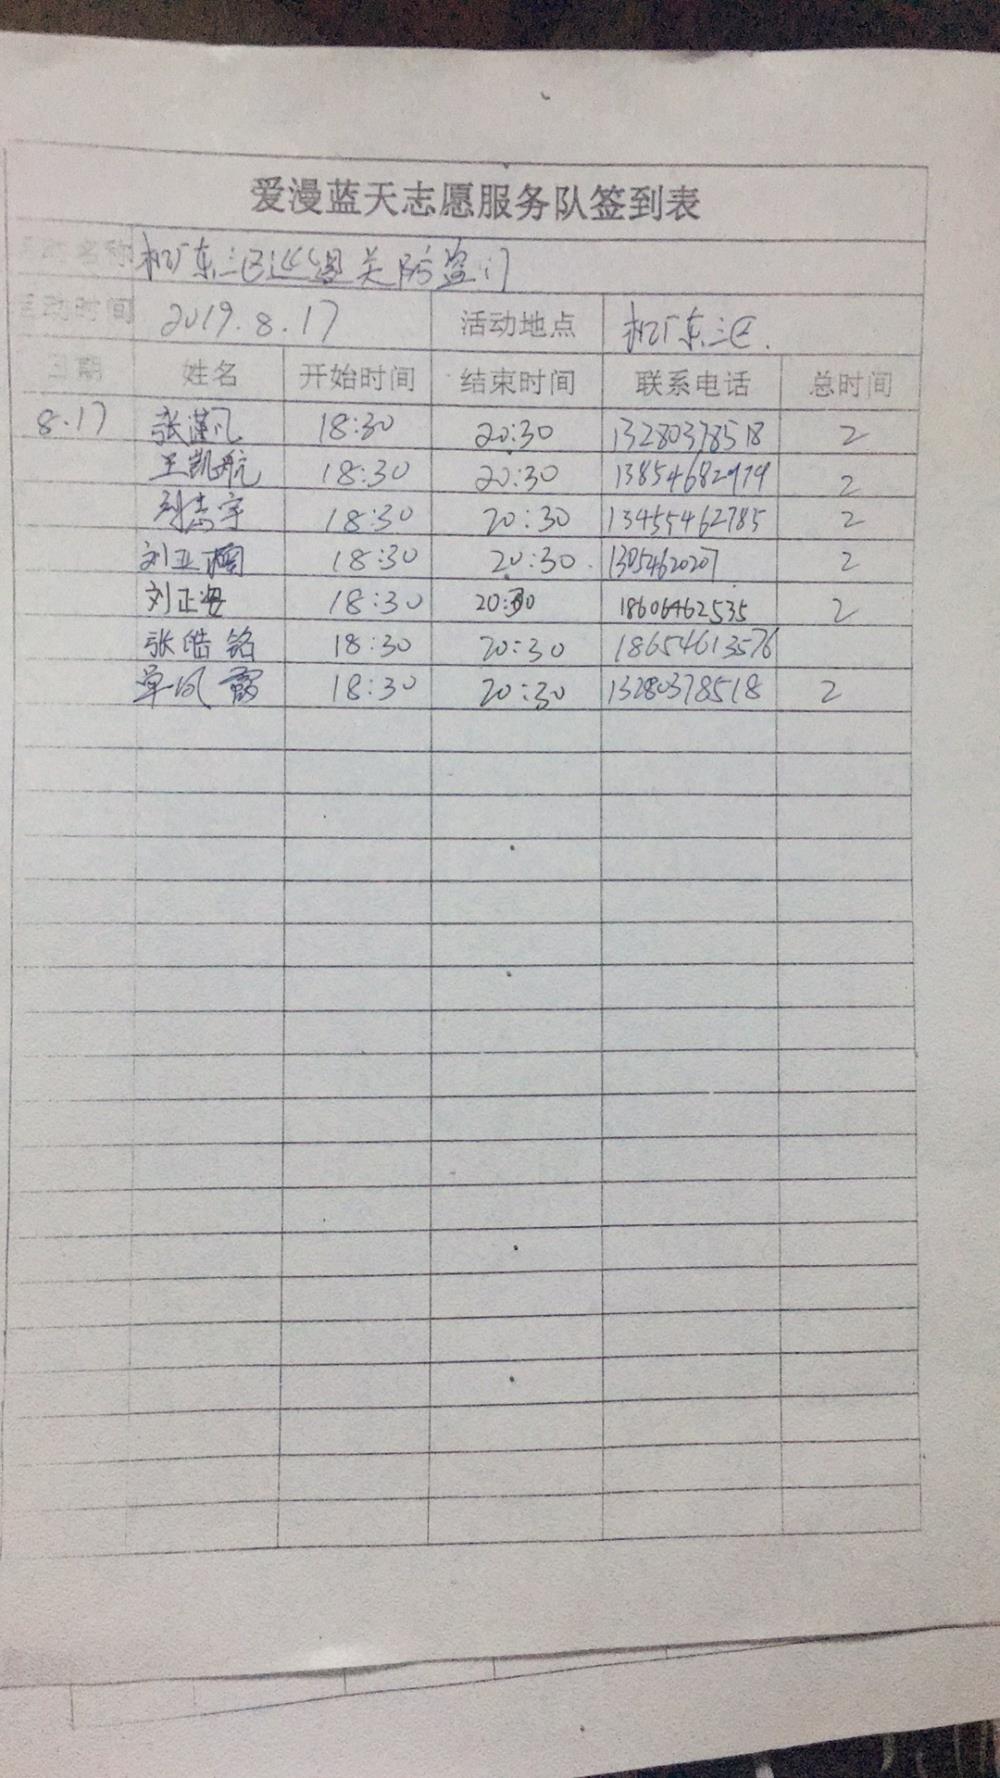 爱漫蓝天志愿服务队签到表
活动名称 机厂东三区巡逻关防盗门
活动时间 2019.8.17 活动地点 机厂东三区.
日期 姓名 开始时间 结束时间 联系电话 总时间
8.17 张潇凡 18:30 20:30 13280378518 2
王凯航 18:30 20:30 13854682979 2
刘志宇 18:30 20:30 13455462785 2
刘亚楠 18:30 20:30 13054620207 2
刘正 18:30 20:30 18606462535 2
张皓铭 18:30 20:30 18654613576
单凤霞 18:30 20:30 13280378518 2